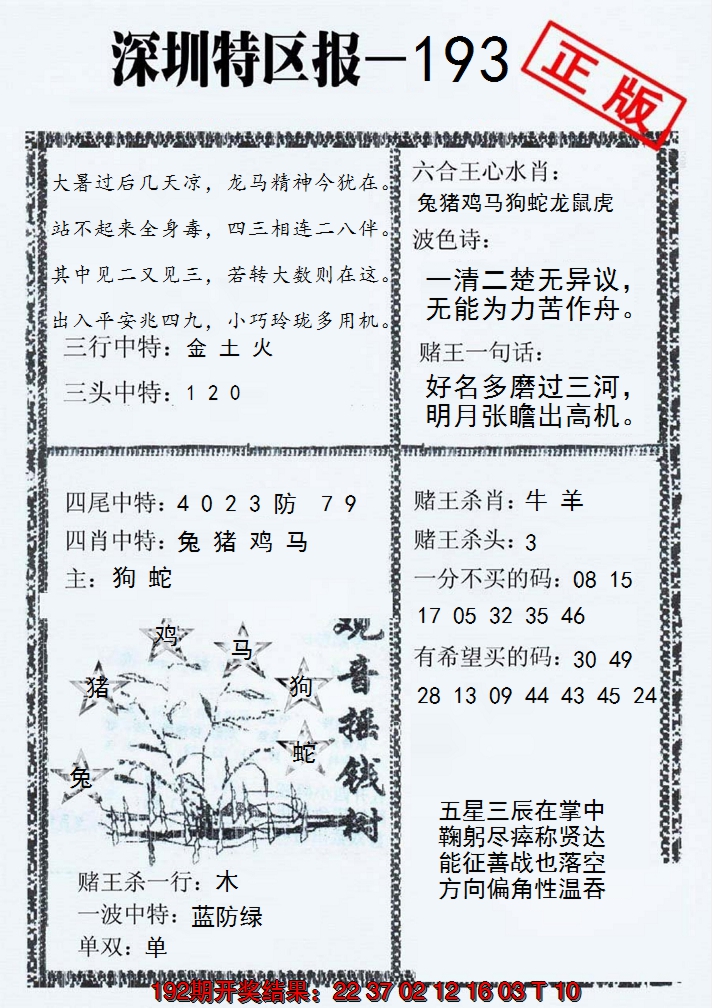 深圳特区报—193
正版
大暑过后几天凉，龙马精神今犹在。
站不起来全身毒，四三相连二八伴。
其中见二又见三，若转大数则在这。
出入平安兆四九，小巧玲珑多用机。
三行中特：金 土 火
三头中特：1 2 0
六合王心水肖：
兔猪鸡马狗蛇龙鼠虎
波色诗：
一清二楚无异议，
无能为力苦作舟。
赌王一句话：
好名多磨过三河，
明月张瞻出高机。
四尾中特：4 0 2 3 防 7 9
四肖中特：兔 猪 鸡 马
主：狗 蛇
鸡
马
猪
狗
蛇
兔
观音摇钱树
赌王杀一行：木
一波中特：蓝防绿
单双：单
赌王杀肖：牛 羊
赌王杀头：3
一分不买的码：08 15
17 05 32 35 46
有希望买的码：30 49
28 13 09 44 43 45 24
五星三辰在掌中
鞠躬尽瘁称贤达
能征善战也落空
方向偏角性温吞
192期开奖结果：22 37 02 12 16 03 T 10